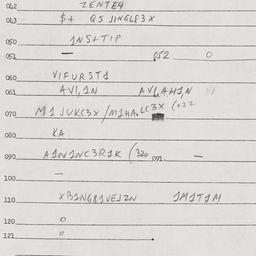 042 ZENTE4
043 $+ QS JINGLE3X
050 1NS+TIP
051 — 052 0
060 VIFURST1
061 AVI,1N AVI,AH1N
070 M1 JUKC3X/M1HA.LC3X (022
080 KA
090 A1N1NC3R1K (320 091 —
100 —
110 XB1NG81VEJZN 1M1T1M
120 0
121 0